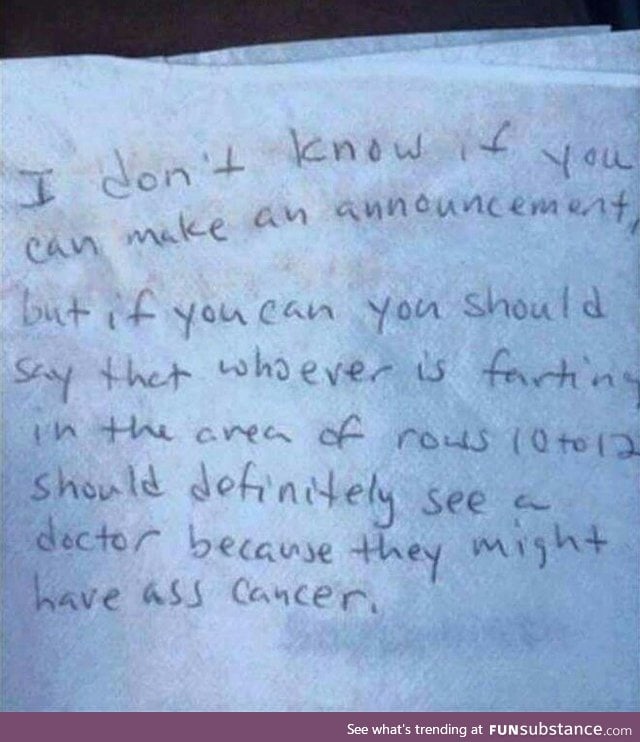 I don't know if you
can make an announcement,
but if you can you should
say that whoever is farting
in the area of rows 10 to 12
should definitely see a
doctor because they might
have ass cancer.
See what's trending at FUNsubstance.com